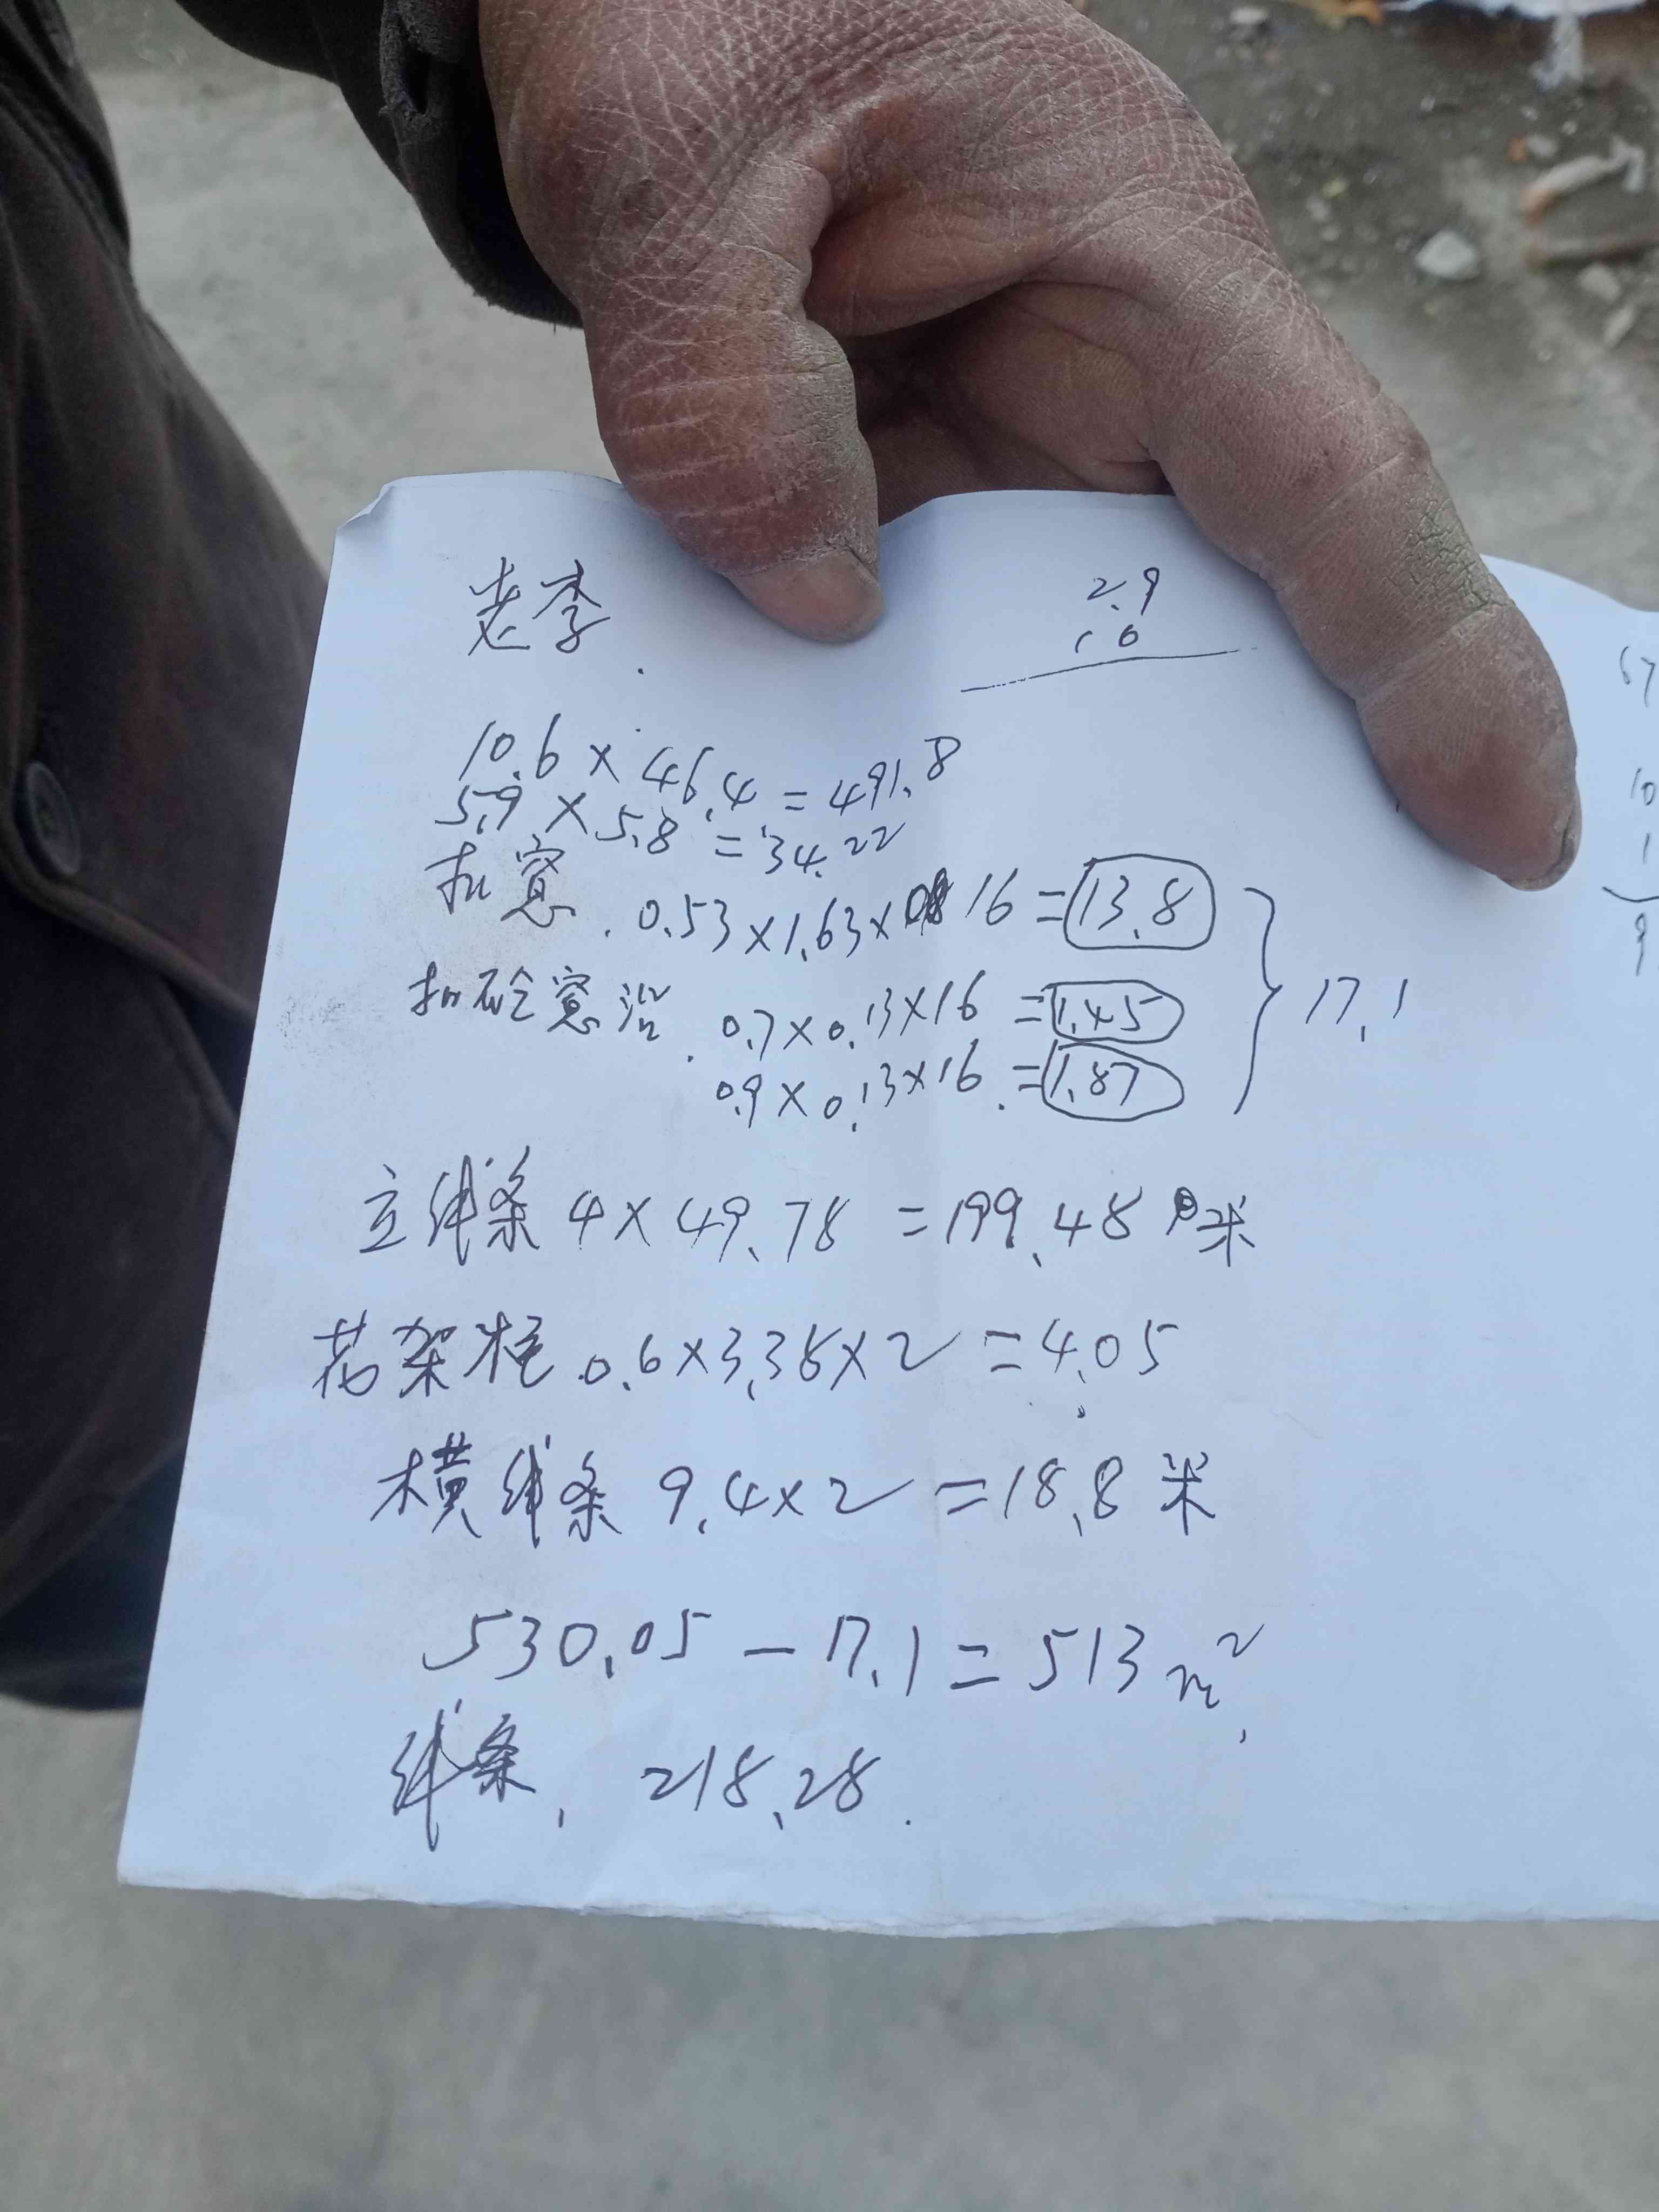 老李
2.9
10
10.6×46.4=491.8
5.9×5.8=34.22
扣窓 0.53×1.63×16=13.8
扣砼窓沿 0.7×0.13×16=1.45
0.9×0.13×16=1.87
17.1
立线条 4×49.78=199.48米
花架柱 0.6×3.38×2=4.05
横线条 9.4×2=18.8米
530.05-17.1=513m²
线条 218.28
67
10
1